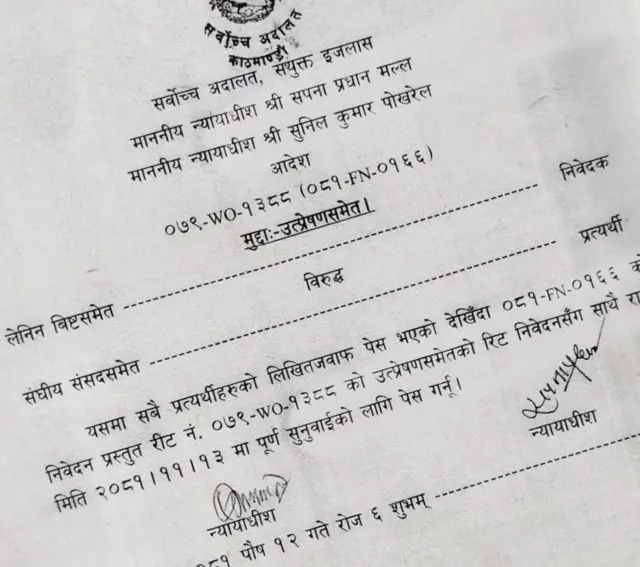 सर्वोच्च अदालत
काठमाण्डौ
सर्वोच्च अदालत, संयुक्त इजलास
माननीय न्यायाधीश श्री सपना प्रधान मल्ल
माननीय न्यायाधीश श्री सुनिल कुमार पोखरेल
आदेश
०७९-WO-१३८८ (०८१-FN-०१६६)
मुद्दाः-उत्प्रेषणसमेत।
लेनिन बिष्टसमेत ------------------------------ निवेदक
विरुद्ध
संघीय संसदसमेत ------------------------------ प्रत्यर्थी
यसमा सबै प्रत्यर्थीहरुको लिखितजवाफ पेस भएको देखिँदा ०८१-FN-०१६६ को
निवेदन प्रस्तुत रीट नं. ०७९-WO-१३८८ को उत्प्रेषणसमेतको रिट निवेदनसँग साथै
मिति २०८१।११।१३ मा पूर्ण सुनुवाईको लागि पेस गर्नू।
न्यायाधीश
न्यायाधीश
पौष १२ गते रोज ६ शुभम् ------------------------------